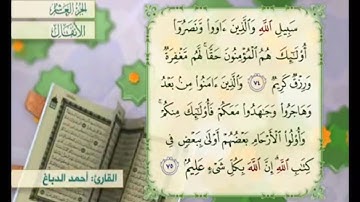 الجزء العاشر
الأنفال
سَبِيلِ ٱللَّهِ وَٱلَّذِينَ ءَاوَوا۟ وَّنَصَرُوٓا۟
أُو۟لَٰٓئِكَ هُمُ ٱلْمُؤْمِنُونَ حَقًّا ۚ لَّهُم مَّغْفِرَةٌ
وَرِزْقٌ كَرِيمٌ ٧٤ وَٱلَّذِينَ ءَامَنُوا۟ مِنۢ بَعْدُ
وَهَاجَرُوا۟ وَجَٰهَدُوا۟ مَعَكُمْ فَأُو۟لَٰٓئِكَ مِنكُمْ ۚ
وَأُو۟لُوا۟ ٱلْأَرْحَامِ بَعْضُهُمْ أَوْلَىٰ بِبَعْضٍ فِى
كِتَٰبِ ٱللَّهِ ۗ إِنَّ ٱللَّهَ بِكُلِّ شَىْءٍ عَلِيمٌۢ ٧٥
القارئ: أحمد الدباغ